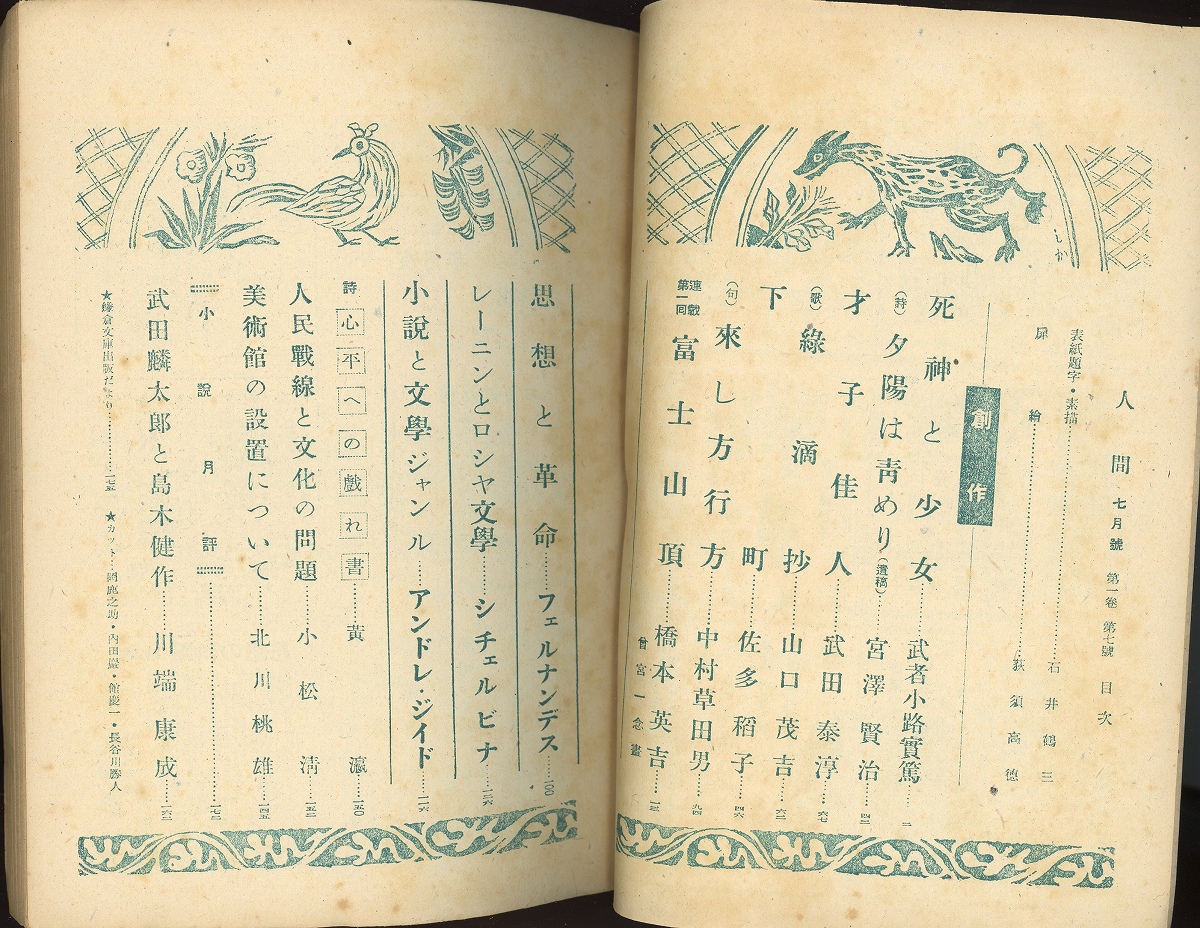 人間 七月號 第一卷 第七號 目次
表紙題字・素描……石井鶴三
扉繪……荻須高徳
創作
死神と少女……武者小路實篤……二
(詩)夕陽は靑めり(遺稿)……宮澤賢治……四三
才子佳人……武田泰淳……六七
(歌)綠滴抄……山口茂吉……六二
下町……佐多稻子……四六
(句)來し方行方……中村草田男……九四
連戴第一回 富士山頂……橋本英吉
曾宮一念畫
思想と革命……フェルナンデス……100
レーニンとロシヤ文學……シチェルビナ……一三六
小說と文學ジャンル……アンドレ・ジイド……一一六
詩 心平への戲れ書……黃瀛……一五〇
人民戰線と文化の問題……小松淸……一五二
美術館の設置について……北川桃雄……一四五
小說月評……一七二
武田麟太郎と島木健作……川端康成……一六二
★鎌倉文庫出版だより……一七五 ★カット…岡鹿之助・內田巖・館慶一・長谷川勝人
しか